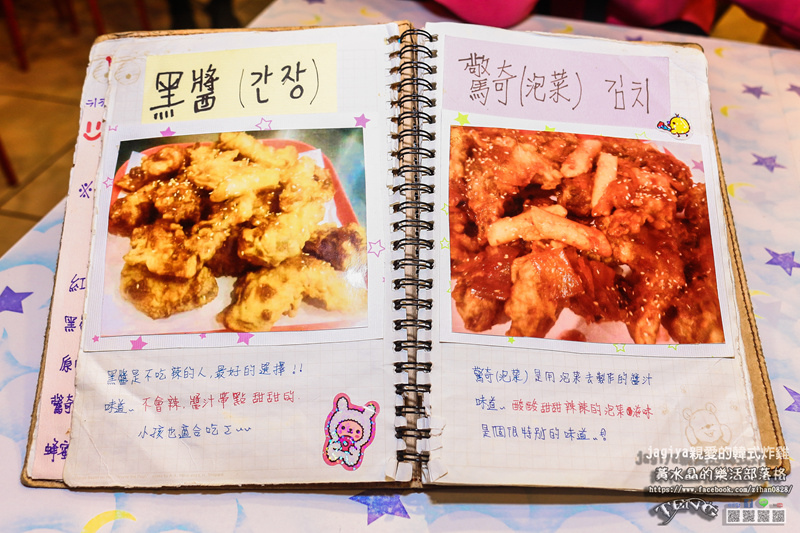 黑醬(간장)
黑醬是不吃辣的人,最好的選擇!!
味道..不會辣.醬汁帶點甜甜的
小孩也適合吃ㄛ~~
驚奇(泡菜) 김치
驚奇(泡菜)是用泡菜去製作的醬汁
味道..酸酸甜甜辣辣的泡菜滋味
是個很特別的味道..
※
紅
黑
原
驚奇
蜂蜜
jagiya親愛的韓式炸雞
黃水晶的樂活部落格
https://www.facebook.com/zihan0828/
TENG